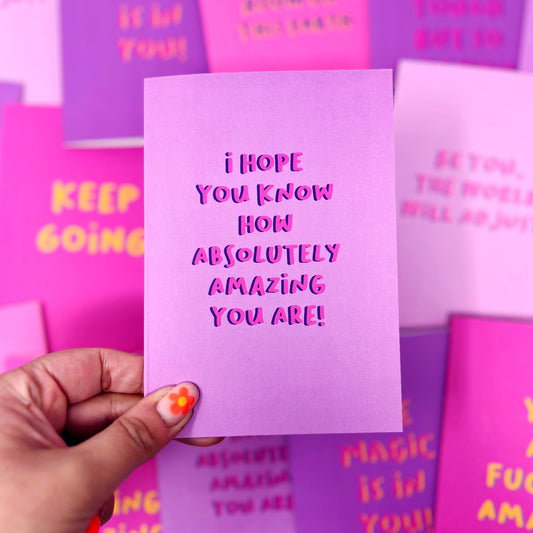 IS IN
YOU!
THIS EARTH
TOUGH
BUT SO
i HOPE
YOU KNOW
HOW
ABSOLUTELY
AMAZiNG
YOU ARE!
KEEP
GOiNG!
BE YOU,
THE WORLD
WILL ADJUST
ABSOLUTELY
AMAZING
YOU ARE
MAGIC
IS IN
YOU!